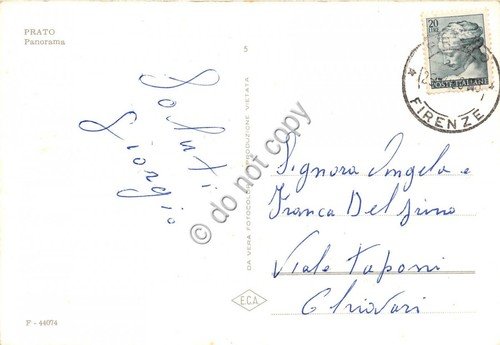 PRATO
Panorama
5
20
POSTE ITALIANE
FIRENZE
Saluti
Giorgio
DA VERA FOTOCOLOR RIPRODUZIONE VIETATA
do not copy
Signora Angela e
Franca Delfino
Viale Tapponi
Chiavari
E.C.A.
F - 44074